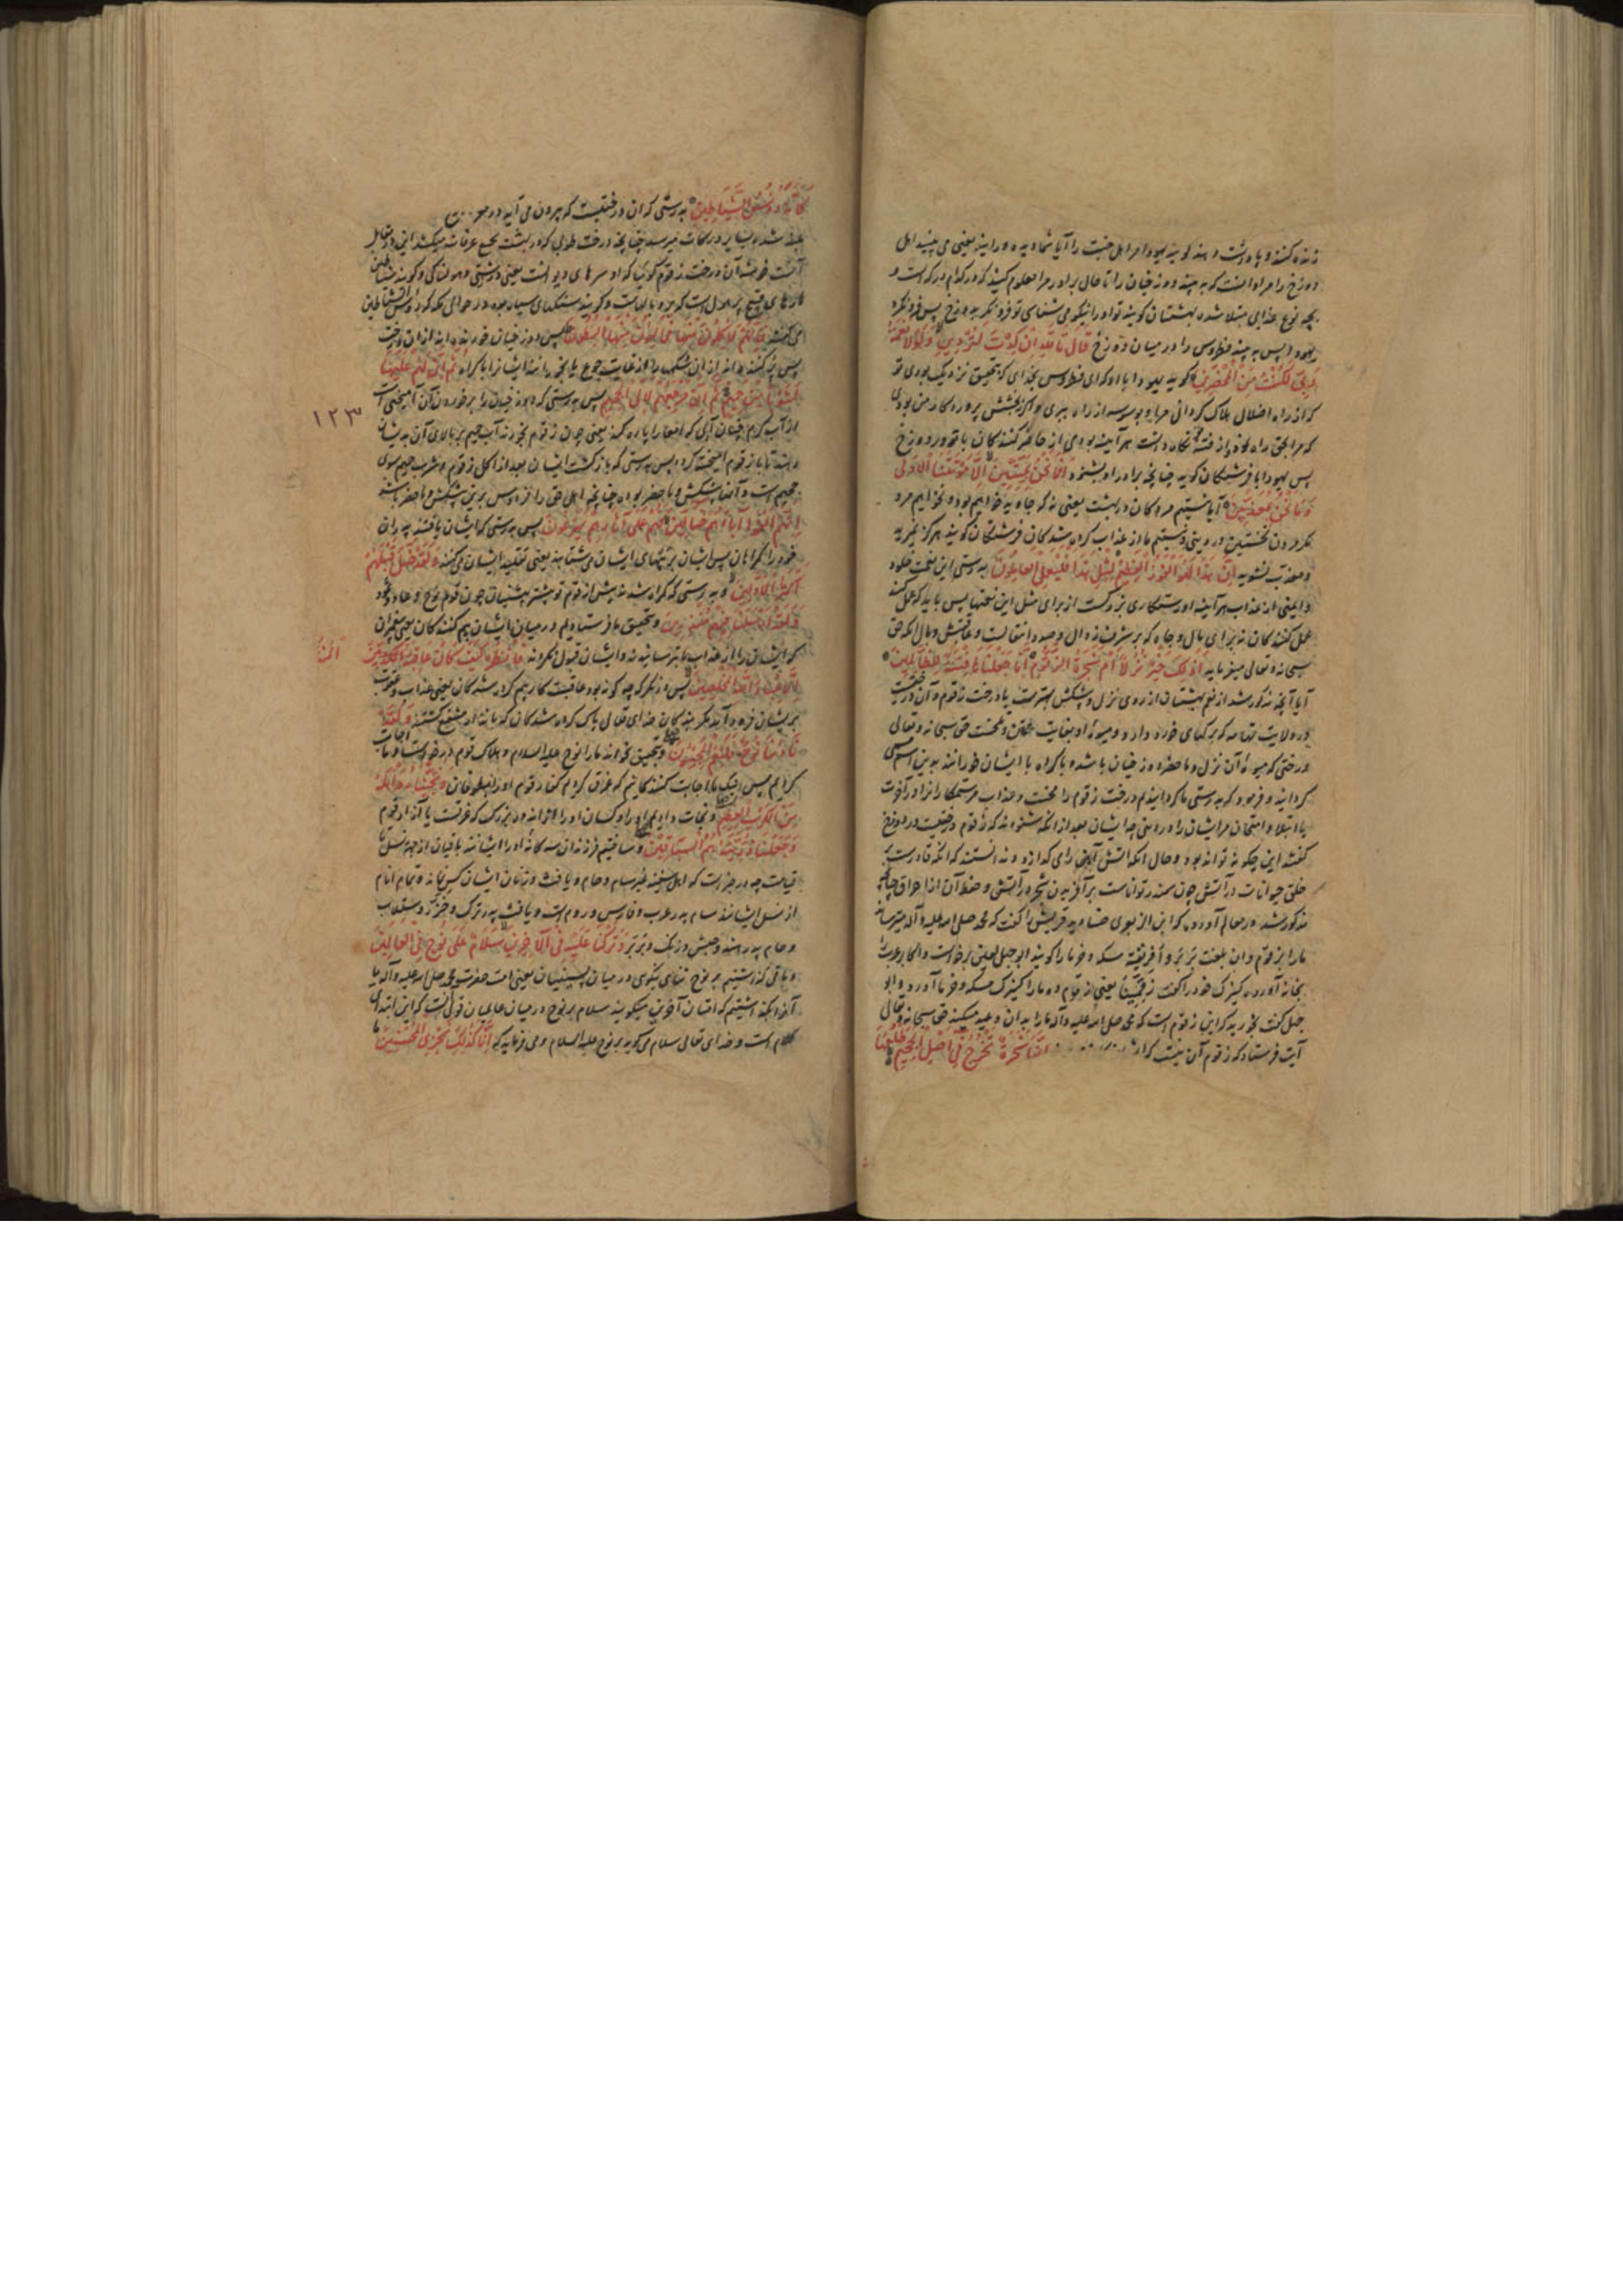 زنده کننده و پاداشت دهند گوید یهودا مر اهل جنت را آیا شما دیده وراینه یعنی می بینید اهل
دوزخ را مراد آنست که به بیند دوزخیان را تا حال برادر مرا معلوم کنید که در کدام درکه است و
بچه نوع عذابی مبتلا شده بهشتیان گویند تو او را نیکو می شناسی تو فرو نگر بدوزخ پس فرو نگرد
یهودا پس به بیند فطروس را در میان دوزخ قَالَ تَاللَّهِ إِنْ كِدْتَ لَتُرْدِينِ وَلَوْلَا نِعْمَةُ
رَبِّي لَكُنْتُ مِنَ الْمُحْضَرِينَ گوید یهودا با او که ای فطروس بخدای که بتحقیق نزدیک بودی تو
که از راه اضلال هلاک گردانی مرا و بوسوسه از راه ببری و اگر نه بخشش پروردگار من بودی
که مرا بحق راه نمود و از فتنه تو نگاه داشت هر آینه بودمی از حاضر کنندگان با تو در دوزخ
پس یهودا با فرشتگان گوید چنانچه برادر او بشنود أَفَمَا نَحْنُ بِمَيِّتِينَ إِلَّا مَوْتَتَنَا الْأُولَى
وَمَا نَحْنُ بِمُعَذَّبِينَ آیا نیستیم مردگان در بهشت یعنی نه که جاوید خواهیم بود و نخواهیم مرد
مگر مردن نخستین در دنیی و نیستیم ما از عذاب کرده شدگان فرشتگان گویند هرگز نمیرید
و معذب نشوید إِنَّ هَذَا لَهُوَ الْفَوْزُ الْعَظِيمُ لِمِثْلِ هَذَا فَلْيَعْمَلِ الْعَامِلُونَ بدرستی این نعمت خلود
و ایمنی از عذاب هر آینه او رستگاری بزرگست از برای مثل این نعمتها پس باید که عمل کنند
عمل کنندگان نه برای مال و جاه که بر شرف زوال و صدد انتقالست و عاقبتش وبال آنکه حق
سبحانه و تعالی میفرماید أَذَلِكَ خَيْرٌ نُزُلًا أَمْ شَجَرَةُ الزَّقُّومِ إِنَّا جَعَلْنَاهَا فِتْنَةً لِلظَّالِمِينَ
آیا آنچه مذکور شد از نعم بهشتیان از روی نزل و پیشکش بهترست یا درخت زقوم و آن درختیست
در ولایت تهامه که برگهای خورد دارد و میوهٔ او بغایت و حق سبحانه و تعالی
درختی که میوهٔ آن نزل و ماحضر دوزخیان باشد و باکراه با ایشان خورانند بدین اسم مسمی
گردانید و فرمود که بدرستی ما گردانیدیم درخت زقوم را محنت و عذاب مر ستمکارانرا در آخرت
یا ابتلا و امتحان مر ایشان را در دنیی چه ایشان بعد از آنکه شنودند که زقوم درختیست در دوزخ
گفتند این چگونه تواند بود و حال آنکه آتش آهن را می گدازد و ندانستند که آنکه قادرست بر
خلق حیوانات در آتش چون سمندر تواناست بر آفریدن شجره در آتش و حفظ آن از احراق چنانچه
مذکور شد در معالم آورده که ابن الزبعری صنادید قریش را گفت که محمد صلی الله علیه و آله میترساند
ما را بزقوم و آن بلغت بربر و أفریقیّه مسکه و خرما را گویند ابو جهل لعین برخاست و اکابر عرب را
بخانه آورد و کنیزک خود را گفت زَقِّمِینَا یعنی از زقوم ده ما را کنیزک مسکه و خرما آورد و ابو
جهل گفت بخورید که این زقوم است که محمد صلی الله علیه و آله ما را بدان وعید میکند حق سبحانه و تعالی
آیت فرستاد که زقوم آن نیست که إِنَّهَا شَجَرَةٌ تَخْرُجُ فِي أَصْلِ الْجَحِيمِ طَلْعُهَا
كَأَنَّهُ رُءُوسُ الشَّيَاطِينِ بدرستی که آن درختیست که بیرون می آید در
بلند شده بسایر درکات میرسد چنانچه درخت طوبی که در بهشت بجمیع غرفات میکشد این در مقابل
آنست خوشه آن درخت زقوم گوئیا که او سرهای دیوانست یعنی در زشتی و هولناکی و گویند شیاطین
مارهای قبیح پر هول است که و گویند سنگهای سیاه بوده در حوالی مکه که رؤس الشیاطین
می گفتند فَإِنَّهُمْ لَآكِلُونَ مِنْهَا فَمَالِئُونَ مِنْهَا الْبُطُونَ پس دوزخیان خورنده اند از آن درخت
پس پر کننده اند از آن شکمها را از غایت جوع یا بخورانند ایشانرا باکراه ثُمَّ إِنَّ لَهُمْ عَلَيْهَا
لَشَوْبًا مِنْ حَمِيمٍ ثُمَّ إِنَّ مَرْجِعَهُمْ لَإِلَى الْجَحِيمِ پس بدرستی که دوزخیان را بر خوردن آن آمیختنی است
از آب گرم چنان آبی که امعا را پاره کند یعنی چون زقوم بخورند آب حمیم بر بالای آن بدیشان
دهند تا با زقوم آمیخته گردد پس بدرستی که بازگشت ایشان بعد از اکل زقوم و شرب حمیم سوی
جحیم است و آنها پیشکش و ماحضر بوده چنانچه اهل حق را فردوس برین پیشکش و ماحضر باشد
إِنَّهُمْ أَلْفَوْا آبَاءَهُمْ ضَالِّينَ فَهُمْ عَلَى آثَارِهِمْ يُهْرَعُونَ پس بدرستی که ایشان یافتند پدران
خود را گمراهان پس ایشان بر پیهای ایشان می شتابند یعنی تقلید ایشان می کنند وَلَقَدْ ضَلَّ قَبْلَهُمْ
أَكْثَرُ الْأَوَّلِينَ و بدرستی که گمراه شدند پیش از قوم تو بیشتر پیشینیان چون قوم نوح و عاد و ثمود
وَلَقَدْ أَرْسَلْنَا فِيهِمْ مُنْذِرِينَ و بتحقیق ما فرستادیم در میان ایشان بیم کنندگان یعنی پیغمبران
که ایشان را از عذاب ما بترسانیدند و ایشان قبول نکردند فَانْظُرْ كَيْفَ كَانَ عَاقِبَةُ الْمُنْذَرِينَ
إِلَّا عِبَادَ اللَّهِ الْمُخْلَصِينَ پس در نگر که چگونه بود عاقبت کار بیم کرده شدگان یعنی عذاب و عقوبت
بریشان فرود آمد مگر بندگان خدای تعالی پاک کرده شدگان که باندار منتفع گشتند وَلَقَدْ
نَادَانَا نُوحٌ فَلَنِعْمَ الْمُجِيبُونَ و بتحقیق بخواند ما را نوح علیه السلام و هلاک قوم درخواست و ما اجابت
کردیم پس نیک ما اجابت کنندگانیم که غرق کردیم کفار قوم او را بطوفان وَنَجَّيْنَاهُ وَأَهْلَهُ
مِنَ الْكَرْبِ الْعَظِيمِ و نجات دادیم او را و کسان او را از اندوه بزرگ که غرقست یا آزار قوم
وَجَعَلْنَا ذُرِّيَّتَهُ هُمُ الْبَاقِينَ و ساختیم فرزندان سه گانهٔ او را ایشانند باقیان از جهة نسل تا
قیامت چه در خبر است که از اهل سفینه غیر سام و حام و یافث و زنان ایشان کسی نماند و تمام انام
از نسل ایشانند سام پدر عرب و فارس و روم است و یافث پدر ترک و خزر و سقلاب
و حام پدر هند و حبش و زنک و بربر وَتَرَكْنَا عَلَيْهِ فِي الْآخِرِينَ سَلَامٌ عَلَى نُوحٍ فِي الْعَالَمِينَ
و باقی گذاشتیم بر نوح ثنای نیکوی در میان پسینیان یعنی امت حضرت محمد صلی الله علیه و آله یا
آنرا بگذاشتیم که امتان آخرین میگویند سلام بر نوح در میان عالمیان قولی آنست که این ابتدای
کلام است و خدای تعالی سلام می گوید بر نوح علیه السلام و می فرماید که إِنَّا كَذَلِكَ نَجْزِي الْمُحْسِنِينَ
١٢٣